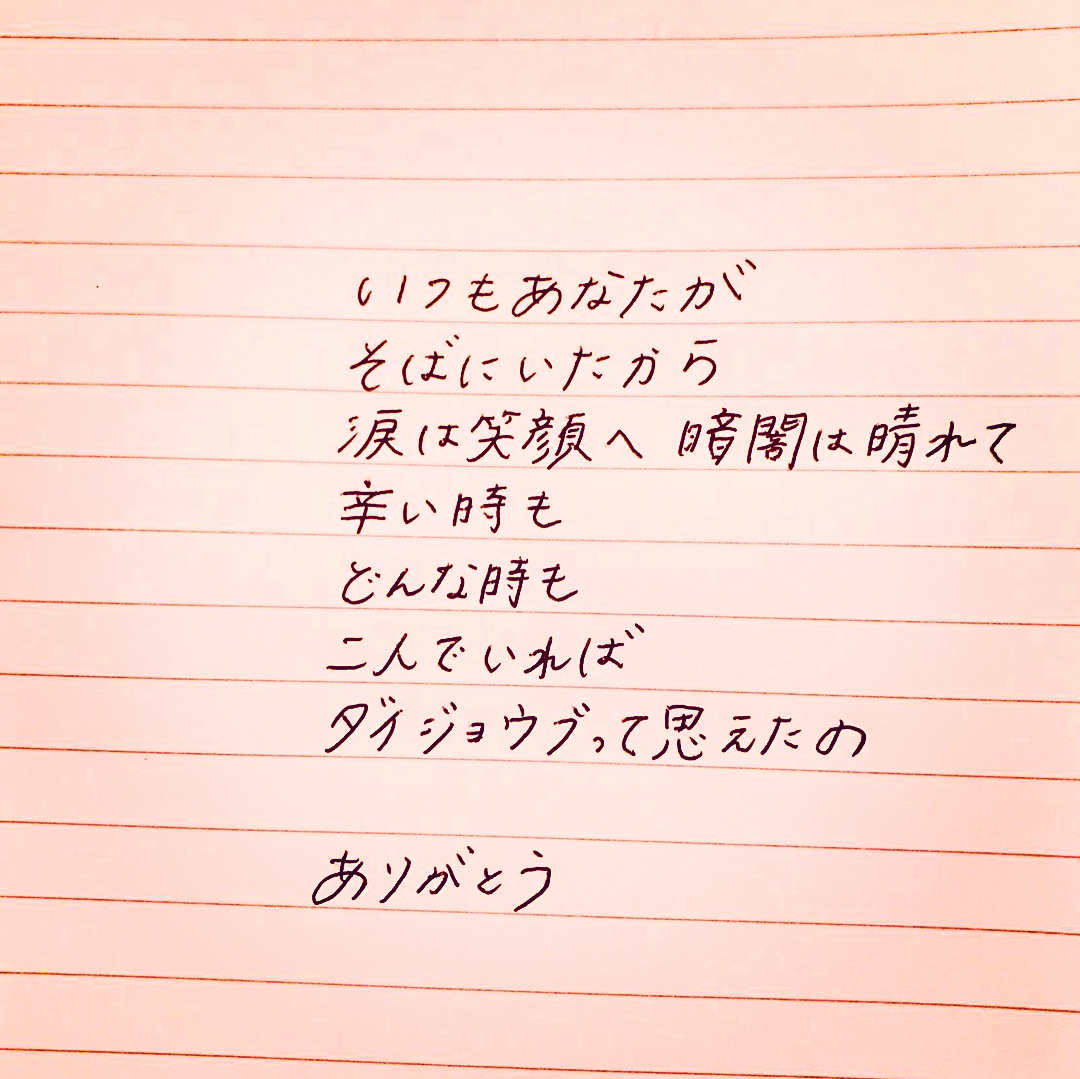 いつもあなたが
そばにいたから
涙は笑顔へ 暗闇は晴れて
辛い時も
どんな時も
二人でいれば
ダイジョウブって思えたの
ありがとう